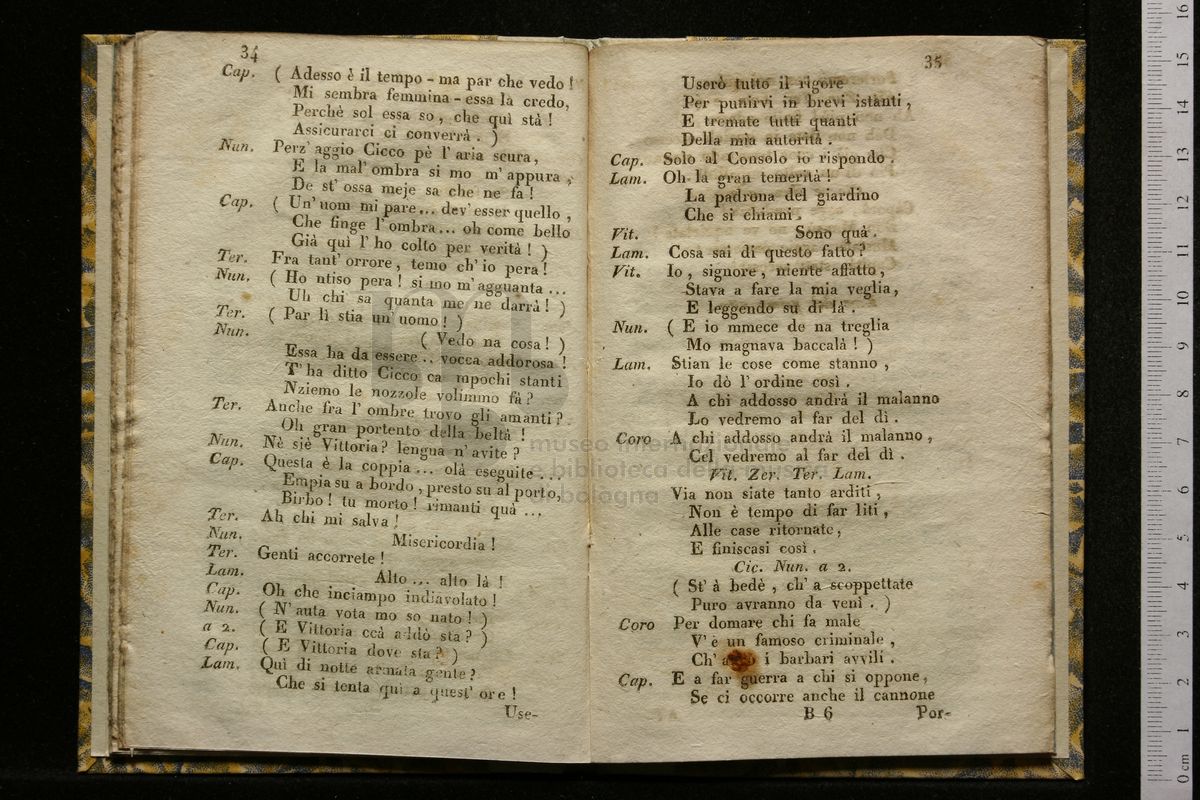 34
Cap. ( Adesso è il tempo - ma par che vedo !
Mi sembra femmina - essa la credo,
Perchè sol essa so, che quì stà !
Assicurarci ci converrà . )
Nun. Perz' aggio Cicco pè l' aria scura,
E la mal' ombra si mo m' appura ,
De st' ossa meje sa che ne fa !
Cap. ( Un' uom mi pare... dev' esser quello ,
Che finge l' ombra... oh come bello
Già quì l' ho colto per verità ! )
Ter. Fra tant' orrore, temo ch' io pera !
Nun. ( Ho ntiso pera ! si mo m' agguanta ...
Uh chi sa quanta me ne darrà ! )
Ter. ( Par lì stia un' uomo ! )
Nun.
( Vedo na cosa ! )
Essa ha da essere .. vocca addorosa !
T' ha ditto Cicco ca mpochi stanti
Nziemo le nozzole volimmo fà ?
Ter. Anche fra l' ombre trovo gli amanti ?
Oh gran portento della beltà !
Nun. Nè siè Vittoria ? lengua n' avite ?
Cap. Questa è la coppia ... olà eseguite ...
Empia su a bordo , presto su al porto,
Birbo ! tu morto ! rimanti quà ...
Ter. Ah chi mi salva !
Nun.
Misericordia !
Ter. Genti accorrete !
Lam.
Alto ... alto là !
Cap. Oh che inciampo indiavolato !
Nun. ( N' auta vota mo so nato ! )
a 2. ( E Vittoria ccà addò sta ? )
Cap. ( E Vittoria dove sta ? )
Lam. Quì di notte armata gente ?
Che si tenta qui a quest' ore !
Use-
35
Userò tutto il rigore
Per punirvi in brevi istanti ,
E tremate tutti quanti
Della mia autorità .
Cap. Solo al Consolo io rispondo .
Lam. Oh la gran temerità !
La padrona del giardino
Che si chiami .
Vit. Sono quà .
Lam. Cosa sai di questo fatto ?
Vit. Io , signore , niente affatto ,
Stava a fare la mia veglia,
E leggendo su di là .
Nun. ( E io mmece de na treglia
Mo magnava baccalà ! )
Lam. Stian le cose come stanno ,
Io dò l' ordine così .
A chi addosso andrà il malanno
Lo vedremo al far del dì .
Coro A chi addosso andrà il malanno ,
Cel vedremo al far del dì .
Vit. Zer. Ter. Lam.
Via non siate tanto arditi ,
Non è tempo di far liti ,
Alle case ritornate,
E finiscasi così .
Cic. Nun. a 2.
( St' à bedè , ch' a scoppettate
Puro avranno da venì . )
Coro Per domare chi fa male
V' è un famoso criminale ,
Ch' i barbari avvilì .
Cap. E a far guerra a chi si oppone,
Se ci occorre anche il cannone
B 6
Por-
museo internazionale
e biblioteca della musica
di bologna
16
15
14
13
12
11
10
9
8
7
6
5
4
3
2
1
0 cm